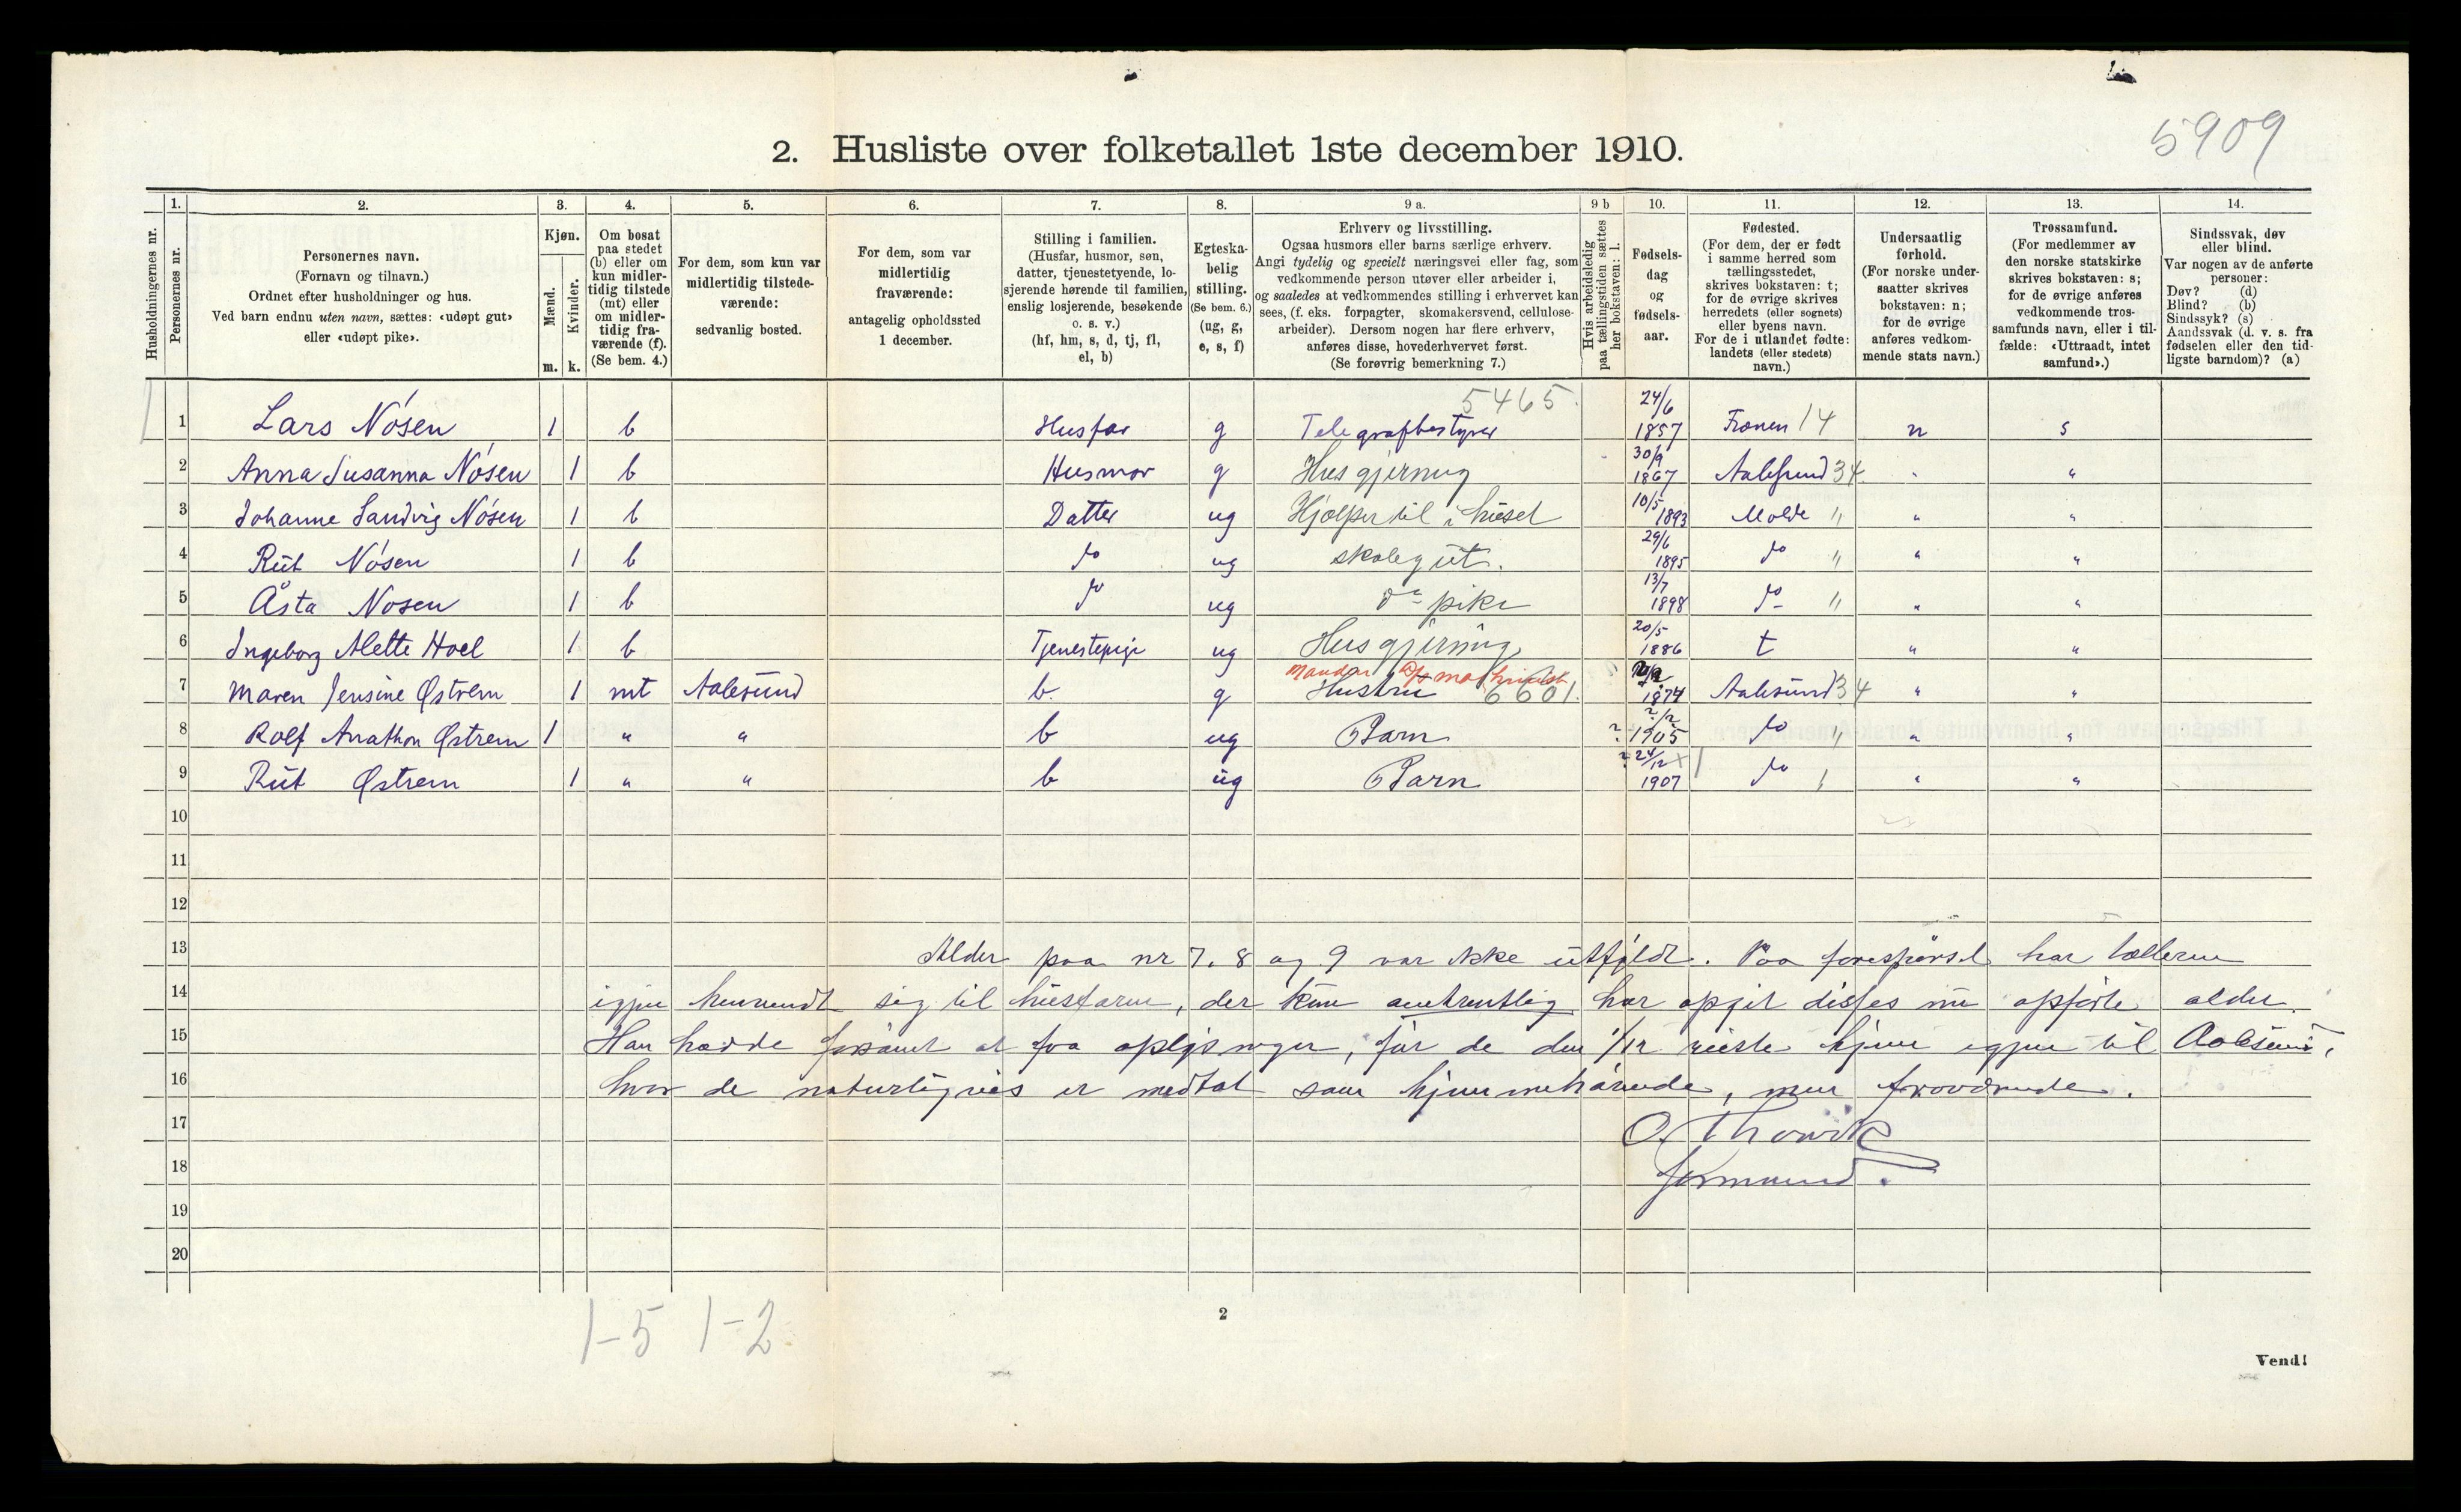 5909
2. Husliste over folketallet 1ste december 1910.
Husholdningernes nr.
1. Personernes nr.
2. Personernes navn. (Fornavn og tilnavn.) Ordnet efter husholdninger og hus. Ved barn endnu uten navn, sættes: «udøpt gut» eller «udøpt pike».
3. Kjøn. Mænd. Kvinder. m. k.
4. Om bosat paa stedet (b) eller om kun midlertidig tilstede (mt) eller om midlertidig fraværende (f). (Se bem. 4.)
5. For dem, som kun var midlertidig tilstedeværende: sedvanlig bosted.
6. For dem, som var midlertidig fraværende: antagelig opholdssted 1 december.
7. Stilling i familien. (Husfar, husmor, søn, datter, tjenestetyende, losjerende hørende til familien, enslig losjerende, besøkende o. s. v.) (hf, hm, s, d, tj, fl, el, b)
8. Egteskabelig stilling. (Se bem. 6.) (ug, g, e, s, f)
9 a. Erhverv og livsstilling. Ogsaa husmors eller barns særlige erhverv. Angi tydelig og specielt næringsvei eller fag, som vedkommende person utøver eller arbeider i, og saaledes at vedkommendes stilling i erhvervet kan sees, (f. eks. forpagter, skomakersvend, cellulosearbeider). Dersom nogen har flere erhverv, anføres disse, hovederhvervet først. (Se forøvrig bemerkning 7.)
9 b Hvis arbeidsledig paa tællingstiden sættes her bokstaven: l.
10. Fødselsdag og fødselsaar.
11. Fødested. (For dem, der er født i samme herred som tællingsstedet, skrives bokstaven: t; for de øvrige skrives herredets (eller sognets) eller byens navn. For de i utlandet fødte: landets (eller stedets) navn.)
12. Undersaatlig forhold. (For norske undersaatter skrives bokstaven: n; for de øvrige anføres vedkommende stats navn.)
13. Trossamfund. (For medlemmer av den norske statskirke skrives bokstaven: s; for de øvrige anføres vedkommende trossamfunds navn, eller i tilfælde: «Uttraadt, intet samfund».)
14. Sindssvak, døv eller blind. Var nogen av de anførte personer: Døv? (d) Blind? (b) Sindssyk? (s) Aandssvak (d. v. s. fra fødselen eller den tidligste barndom)? (a)
1 Lars Nósen 1 b Husfar g Telegrafbestyrer 5465. 24/6 1857 Frænen 14 n s
2 Anna Susanna Nósen 1 b Husmor g Husgjerning 30/9 1867 Aalesund 34 " "
3 Johanne Sandvig Nósen 1 b Datter ug Hjælper til i huset 10/5 1893 Molde " " "
4 Rut Nósen 1 b do ug skolegut. 29/6 1895 do " " "
5 Åsta Nosen 1 b do ug do pike 13/7 1898 do " " "
6 Ingeborg Alette Hoel 1 b Tjenestepige ug Husgjerning 20/5 1886 t " "
7 Maren Jensine Østrem 1 mt Aalesund b g Hustru 6601. 1874 Aalesund 34 " "
8 Rolf Anathon Østrem 1 " " b ug Barn ? ?/2 1905 do " " "
9 Rut Østrem 1 " " b ug Barn ? 24/12 1907 do " " "
10
11
12
13 Alder paa nr 7. 8 og 9 var ikke utfyldt. Paa forespørsel har tælleren
14 igjen henvendt sig til husfaren, der kun omtrentlig har opgit disses nu opførte alder.
15 Han hadde forsømt at faa oplysninger, før de den 1/12 reiste hjem igjen til Aalesund,
16 hvor de naturligvis er medtat som hjemmehørende, men fraværende.
17
18 formand.
19
20
1-5 1-2
2
Vend!